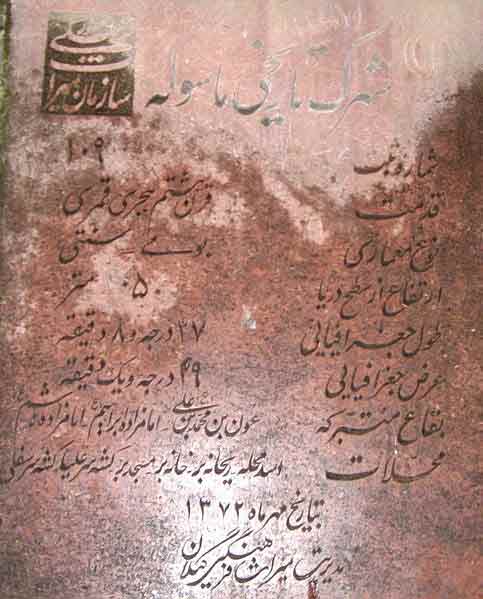 سازمان میراث
شهرک تاریخی ماسوله
شماره ثبت ۱۰۹
قدمت قرن هشتم هجری قمری
نوع معماری بومی سنتی
ارتفاع از سطح دریا ۱۰۵۰ متر
طول جغرافیائی ۳۷ درجه و ۸ دقیقه
عرض جغرافیایی ۴۹ درجه و یک دقیقه
بقاع متبرکه عون بن محمد بن علی، امامزاده ابراهیم، امامزاده هاشم
محلات اسد محله ریحانه بر خانه بر مسجد بر کشه سر علیا کشه سر سفلی
بتاریخ مهرماه ۱۳۷۲
مدیریت میراث فرهنگی گیلان